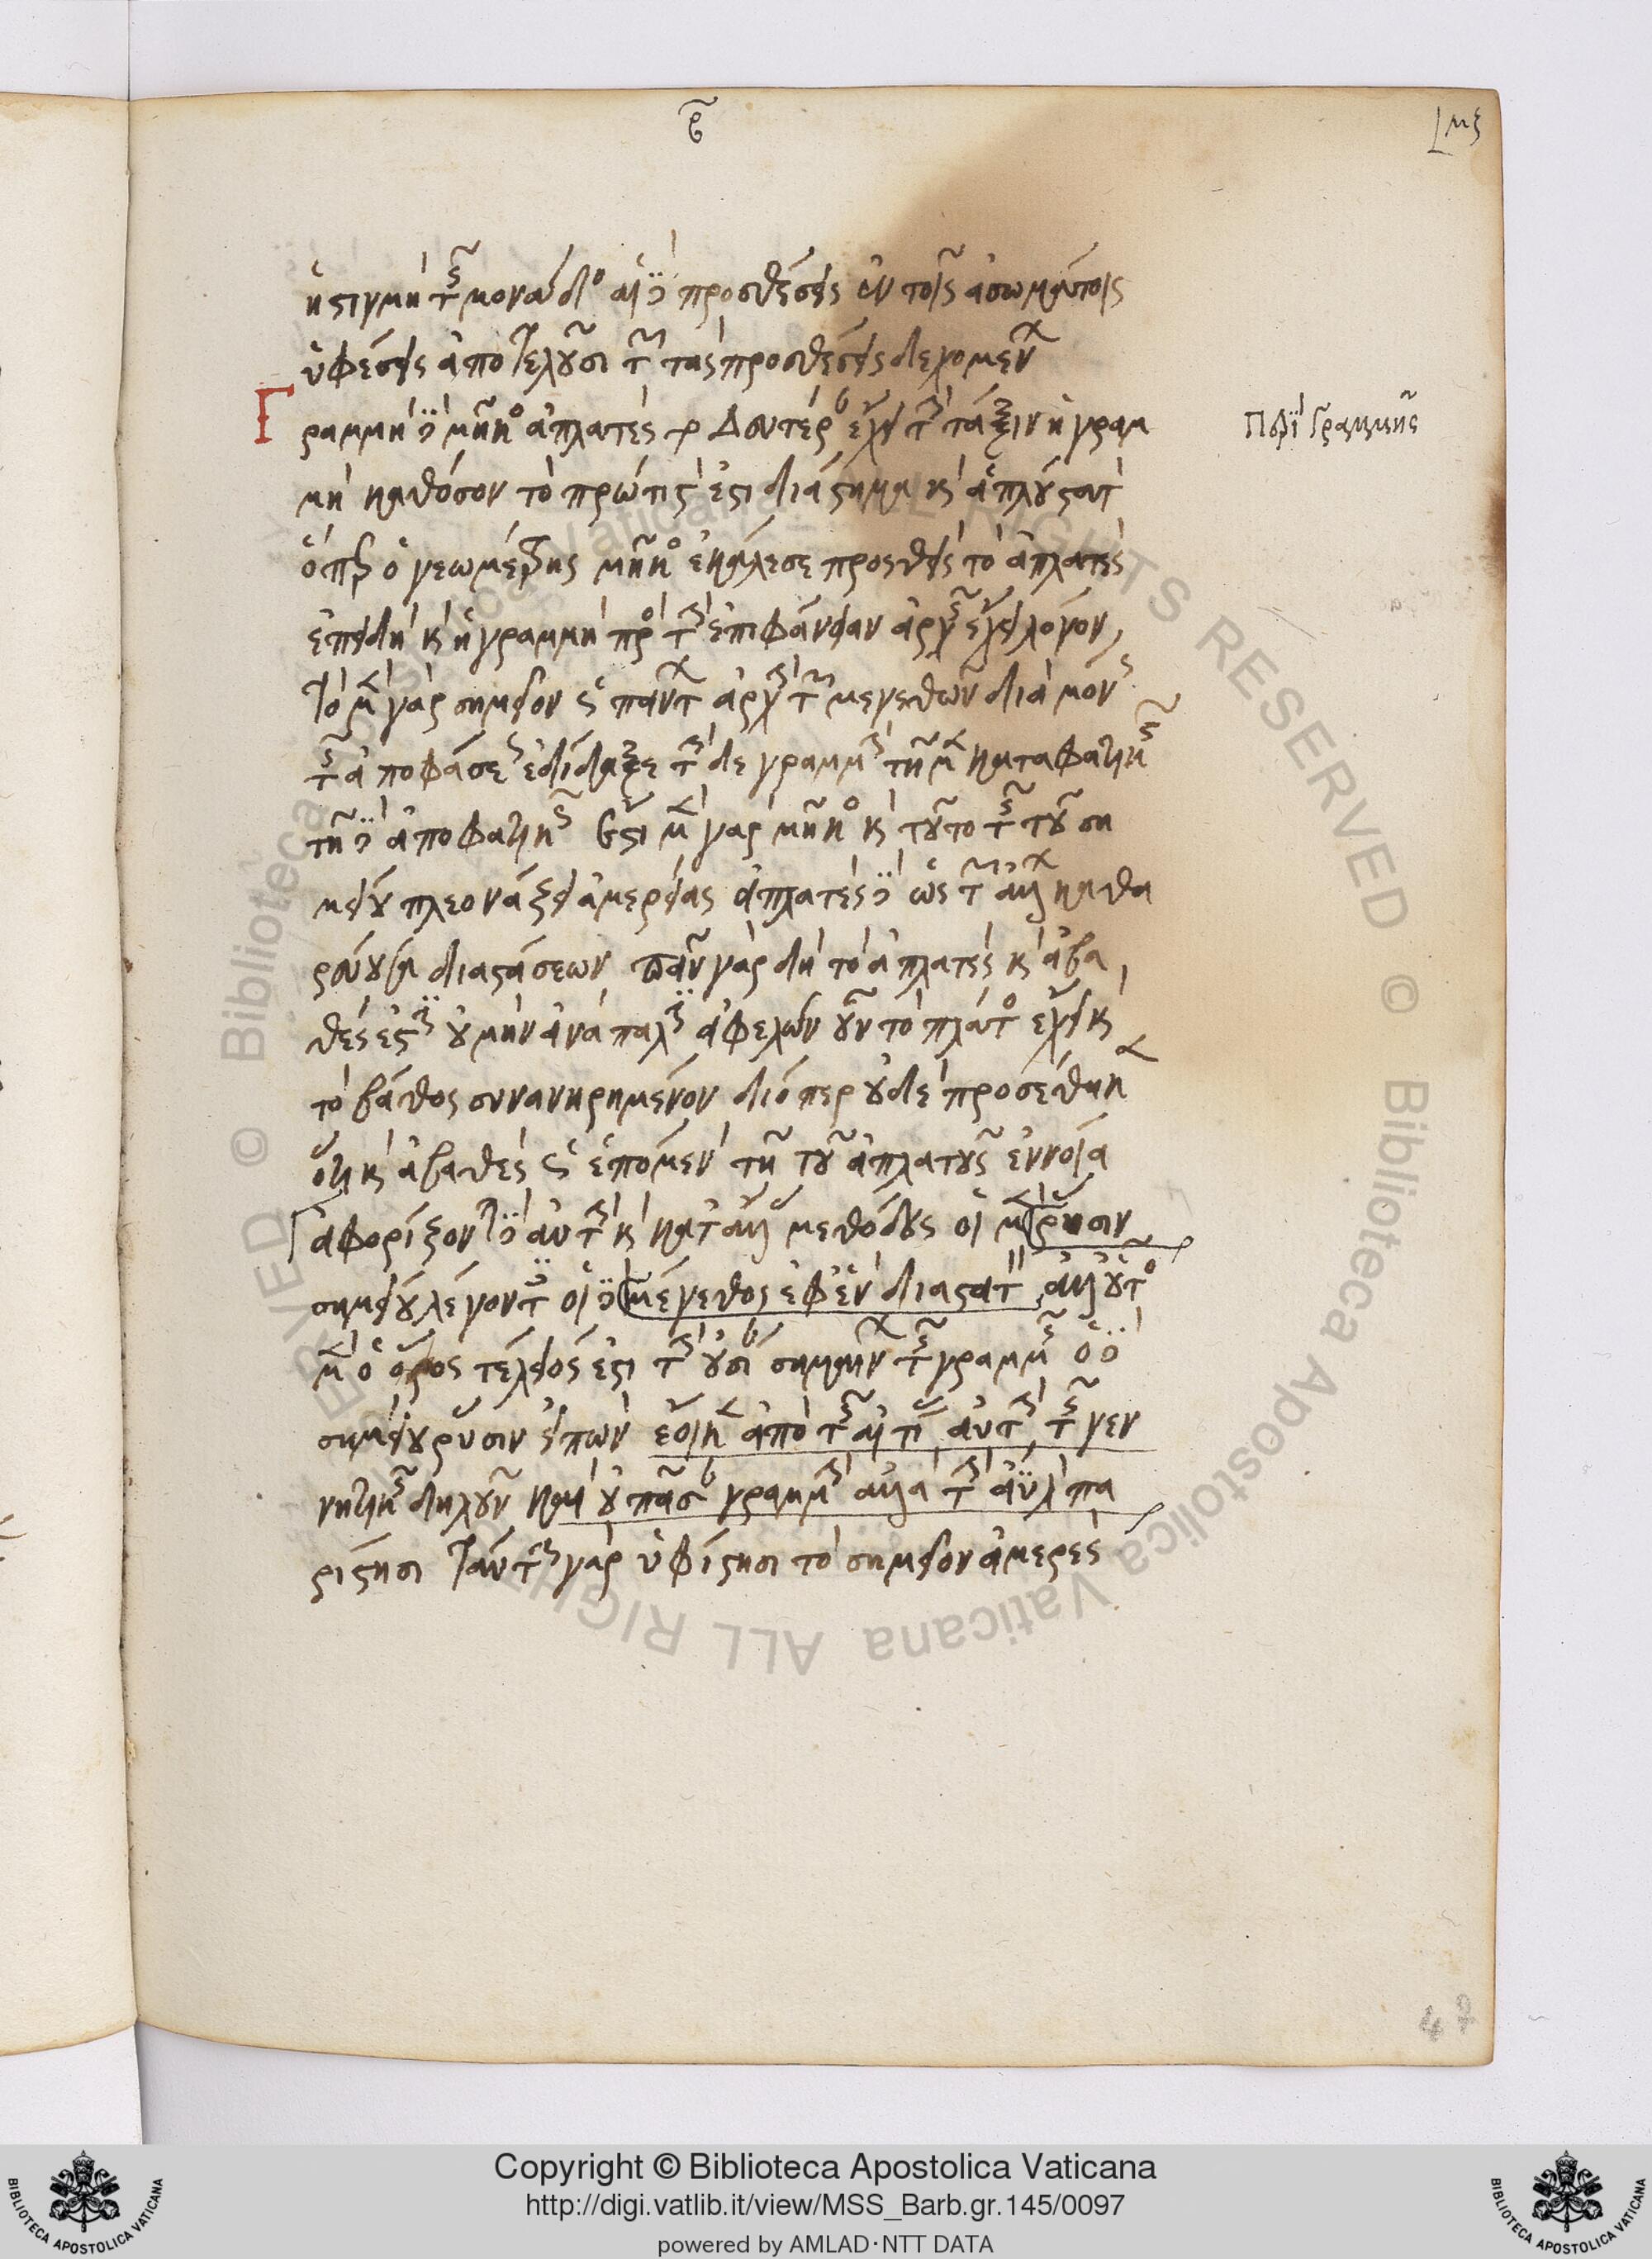 ἡ στιγμὴ τῆς μονάδος αἱ δὲ προσθέσεις ἐν τοῖς ἀσωμάτοις
ὑφέσεις ἀποτελοῦσι τῶν τὰς προσθέσεις δεχομένων
Γραμμὴ δὲ μῆκος ἀπλατές δευτέραν ἔχει τὴν τάξιν ἡ γραμ
Περὶ Γραμμῆς
μὴ καθόσον τὸ πρώτιστόν ἐστι διάστημα καὶ ἁπλούστατον
ὅπερ ὁ γεωμέτρης μῆκος ἐκάλεσε προσθεὶς τὸ ἀπλατές
ἐπειδὴ καὶ ἡ γραμμὴ πρὸς τὴν ἐπιφάνειαν ἀρχῆς ἔχει λόγον,
τὸ μὲν γὰρ σημεῖον ὡς πάντων ἀρχὴν τῶν μεγεθῶν διὰ μόνης
τῆς ἀποφάσεως ἐδίδαξε τὴν δὲ γραμμὴν τῇ μὲν καταφατικῶς
τῇ δὲ ἀποφατικῶς Ἔστι μὲν γὰρ μῆκος καὶ τοῦτο τῆς τοῦ ση
μείου πλεονάζει ἀμερείας ἀπλατὲς δὲ ὡς τῶν ἄλλων καθα
ρεύουσα διαστάσεων πᾶν γὰρ δὴ τὸ ἀπλατές καὶ ἀβα
θές ἐστιν οὐ μὴν ἀνάπαλιν ἀφελὼν οὖν τὸ πλάτος ἔχει καὶ
τὸ βάθος συνανῃρημένον διόπερ οὐδὲ προσέθηκεν
ὅτι καὶ ἀβαθές ὡς ἑπόμενον τῇ τοῦ ἀπλατοῦς ἐννοίᾳ
ἀφορίζονται δὲ αὐτὴν καὶ κατ' ἄλλας μεθόδους οἱ μὲν ῥύσιν
σημείου λέγοντες οἱ δὲ μέγεθος ἐφ' ἓν διαστατόν ἀλλ' οὗτος
μὲν ὁ ὅρος τέλειός ἐστι τὴν οὐσίαν σημαίνων τῆς γραμμῆς ὁ δὲ
σημείου ῥύσιν εἰπὼν ἔοικεν ἀπὸ τῆς αἰτίας αὐτὴν τῆς γεν
νητικῆς δηλοῦν καὶ οὐ πᾶσαν γραμμὴν ἀλλὰ τὴν ἄϋλον πα
ρίστησι ταύτην γὰρ ὑφίστησι τὸ σημεῖον ἀμερὲς
47
Copyright © Biblioteca Apostolica Vaticana
http://digi.vatlib.it/view/MSS_Barb.gr.145/0097
powered by AMLAD·NTT DATA